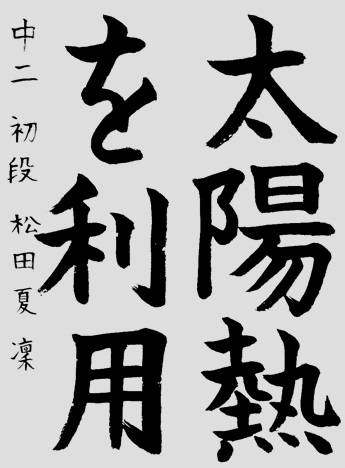 太陽熱
を利用
中二 初段 松田夏凜